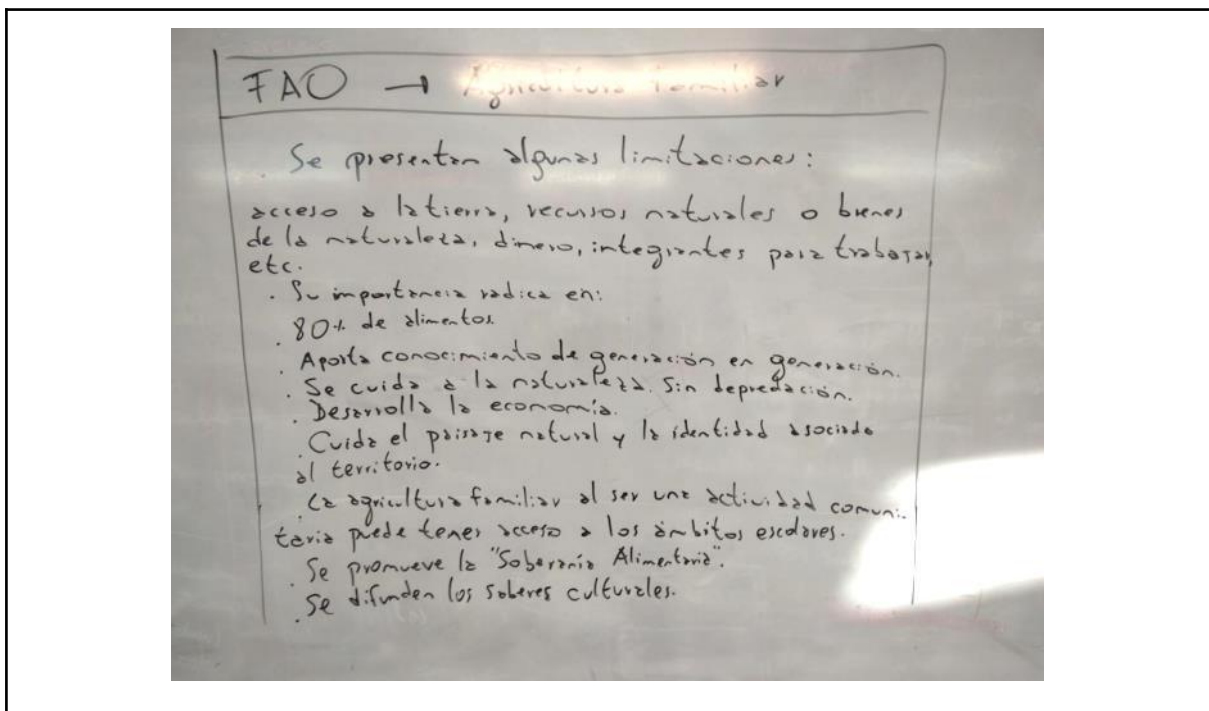 FAO → Agricultura familiar
. Se presentan algunas limitaciones:
acceso a la tierra, recursos naturales o bienes
de la naturaleza, dinero, integrantes para trabajar,
etc.
. Su importancia radica en:
. 80% de alimentos.
. Aporta conocimiento de generación en generación.
. Se cuida a la naturaleza. Sin depredación.
. Desarrolla la economía.
. Cuida el paisaje natural y la identidad asociada
al territorio.
. La agricultura familiar al ser una actividad comuni-
taria puede tener acceso a los ámbitos escolares.
. Se promueve la "Soberanía Alimentaria".
. Se difunden los saberes culturales.